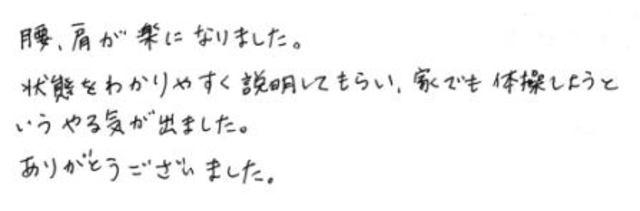 腰、肩が楽になりました。
状態をわかりやすく説明してもらい、家でも体操しようと
いうやる気が出ました。
ありがとうございました。